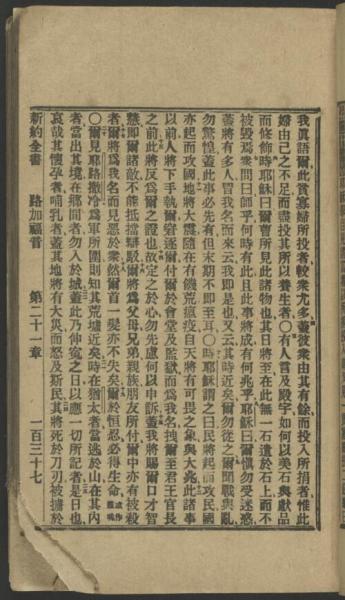 我眞語爾此貧寡婦所投者較衆尤多蓋彼衆由其有餘而投入所捐者惟此
婦由己之不足而盡投其所以養生者〇有人言及殿宇如何以美石與獻品
而修飾時耶穌曰爾曹所見此諸物也其日將至在此無一石遺於石上而不
被毀焉衆問曰師乎何時有此且此事將成有何兆乎耶穌曰爾愼勿受迷惑
蓋將有多人冒我名而來云我卽是也又云其時近矣爾勿從之爾聞戰與亂
勿驚惶蓋此事必先有但末期不卽至耳〇時耶穌謂之曰民將起而攻民國
亦起而攻國地將大震隨在有饑荒瘟疫自天將有可畏之象與大兆此諸事
以前人將下手執爾窘逐爾付爾於會堂及監獄而爲我名拽爾至君王官長
之前此將反爲爾之證也故定之於心勿先慮何以申訴蓋我將賜爾口才智
慧卽爾諸敵不能抵擋辯駁爾將爲父母兄弟親族朋友所付爾中亦有被殺
者爾將爲我名而見惡於衆然爾首一髮亦不失矣爾於恒忍必得生命
〇爾見耶路撒冷爲軍所圍則知其荒墟近矣時在猶太者當逃於山在其內
者當出其境在鄉間者勿入於城蓋此乃伸冤之日以應一切所記者是日也
哀哉其懷孕者哺乳者蓋其地將有大災而怒及斯民其將死於刀刃被擄於
新約全書 路加福音 第二十一章 一百三十七